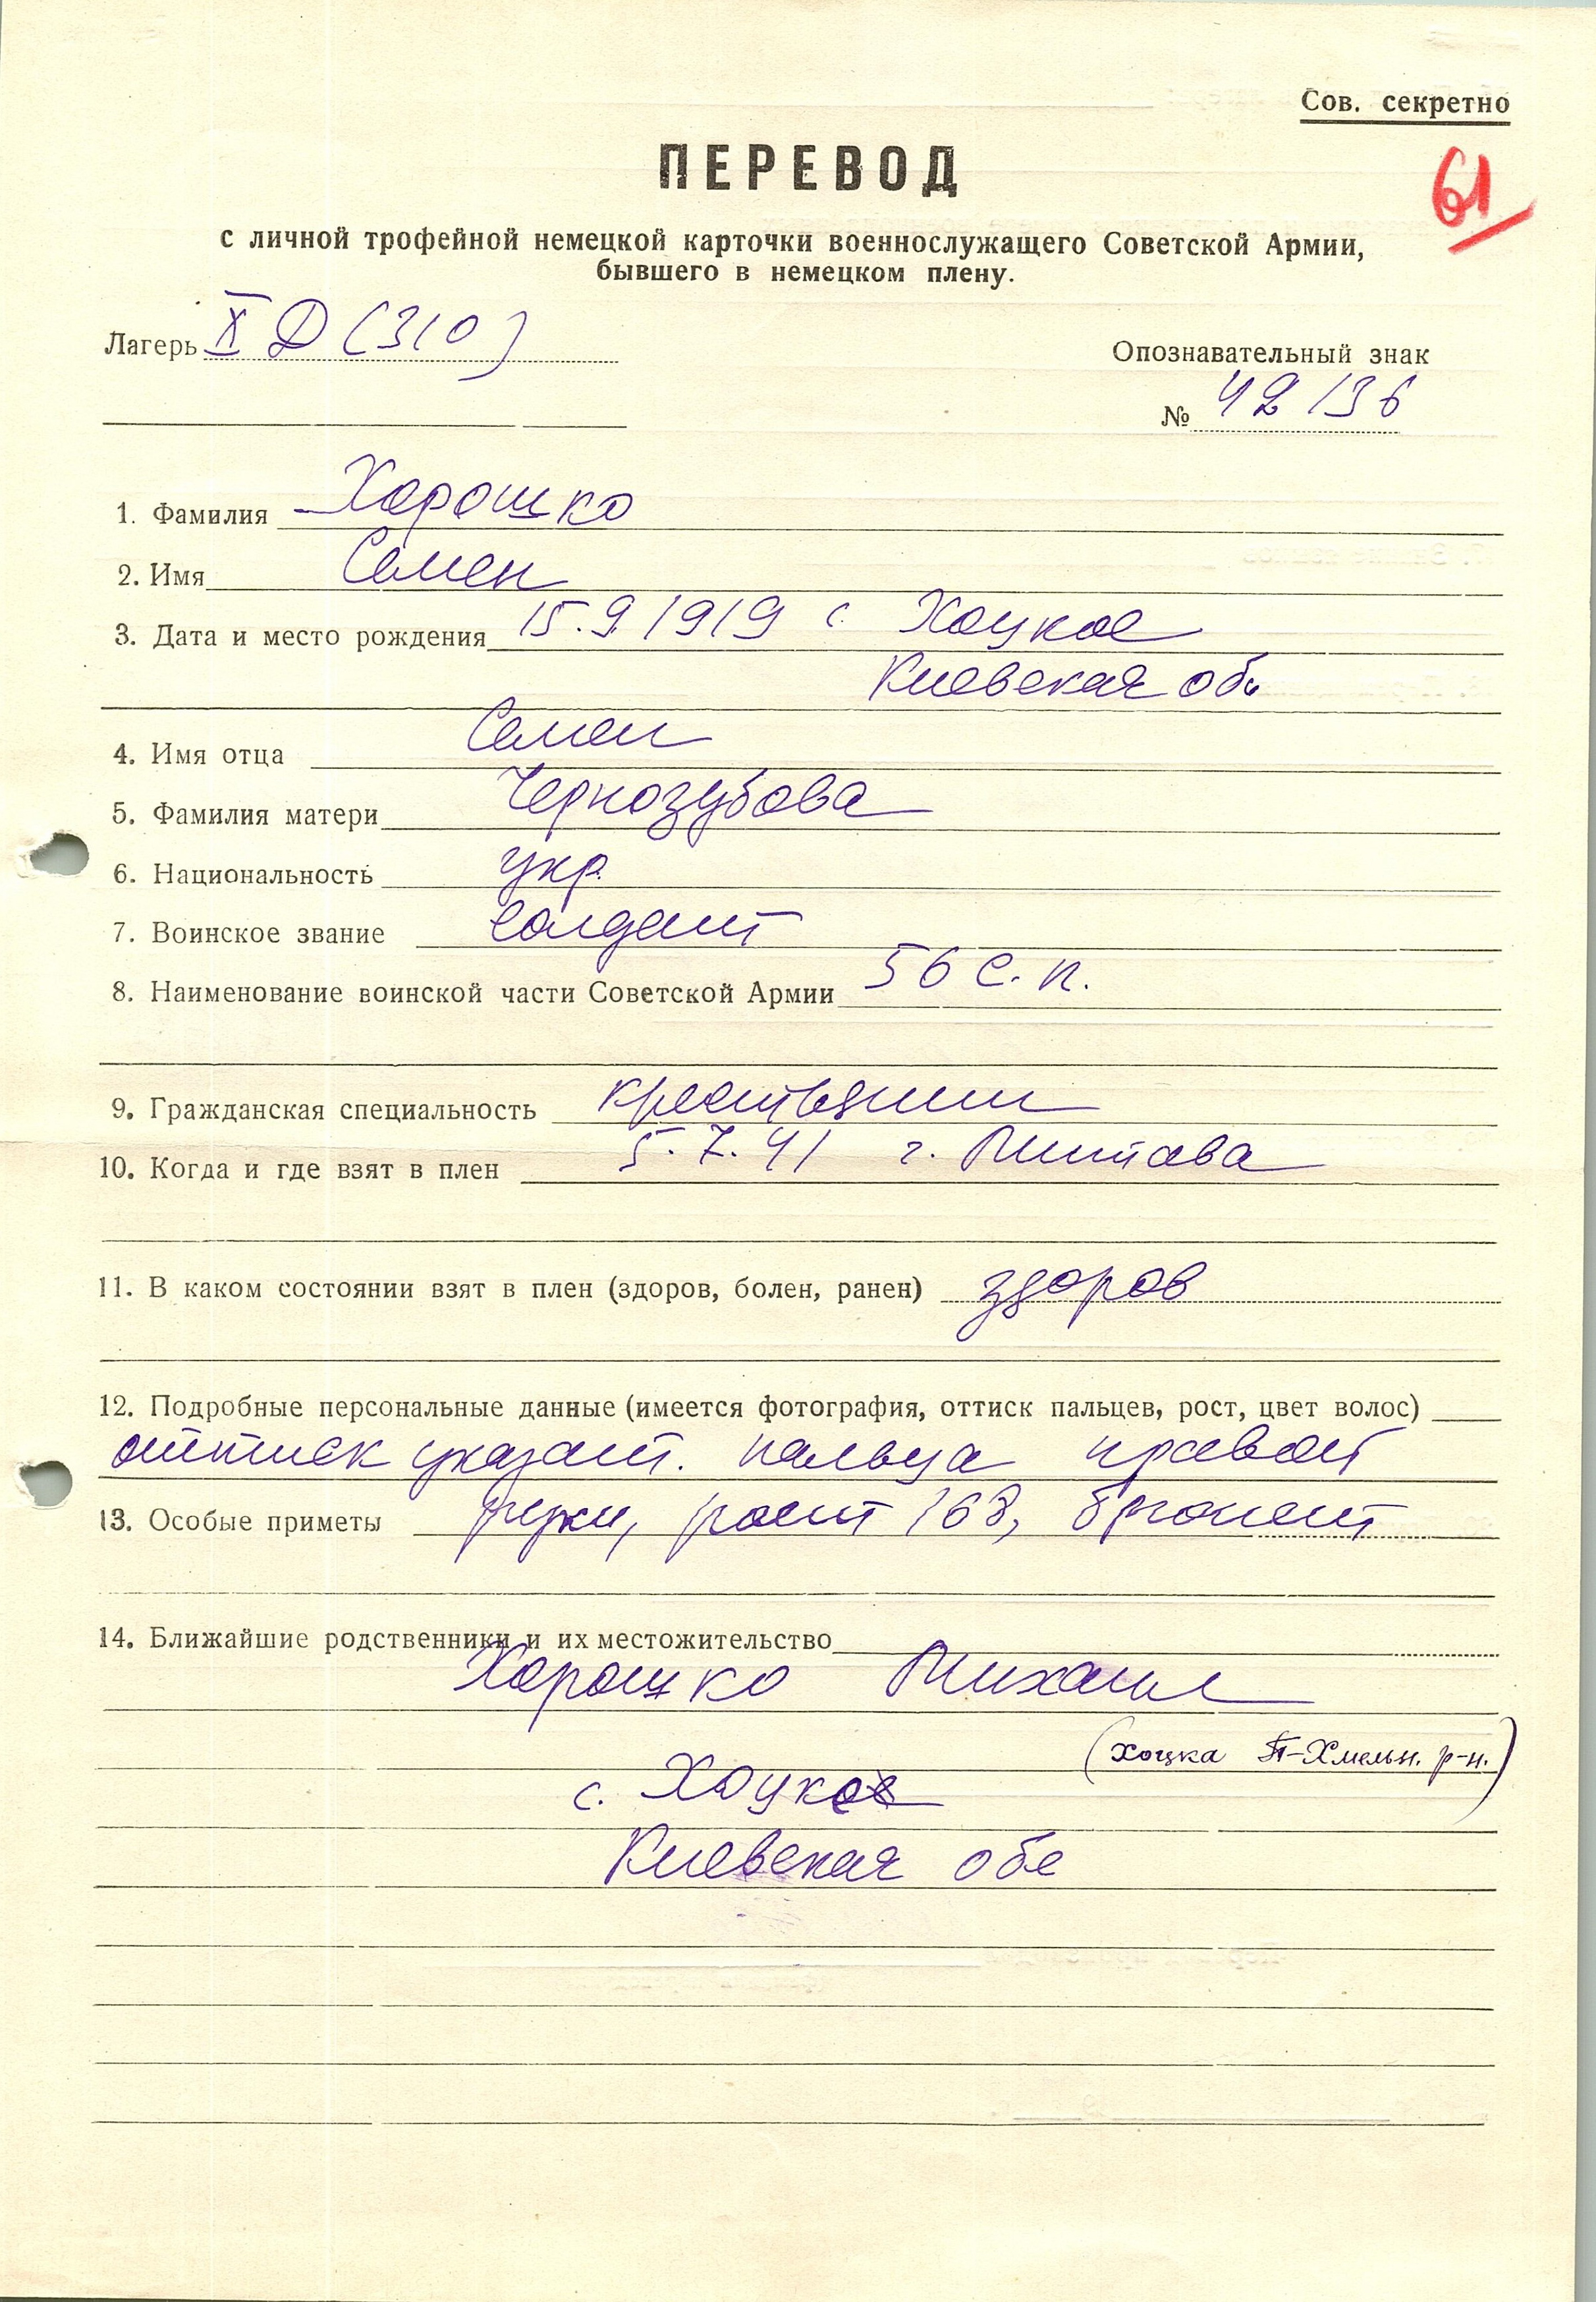 Сов. секретно
61
ПЕРЕВОД
с личной трофейной немецкой карточки военнослужащего Советской Армии,
бывшего в немецком плену.
Лагерь X Д (310)
Опознавательный знак
№ 42136
1. Фамилия Хорошко
2. Имя Семен
3. Дата и место рождения 15.9.1919 с. Хоцкое
Киевская об.
4. Имя отца Семен
5. Фамилия матери Чернозубова
6. Национальность укр.
7. Воинское звание солдат
8. Наименование воинской части Советской Армии 56 с. п.
9. Гражданская специальность крестьянин
10. Когда и где взят в плен 5.7.41 г. Митава
11. В каком состоянии взят в плен (здоров, болен, ранен) здоров
12. Подробные персональные данные (имеется фотография, оттиск пальцев, рост, цвет волос)
оттиск указат. пальца правой
13. Особые приметы руки, рост 168, брюнет
14. Ближайшие родственники и их местожительство
Хорошко Михаил
(хоцка П-Хмельн. р-н.)
с. Хоцкое
Киевская обл